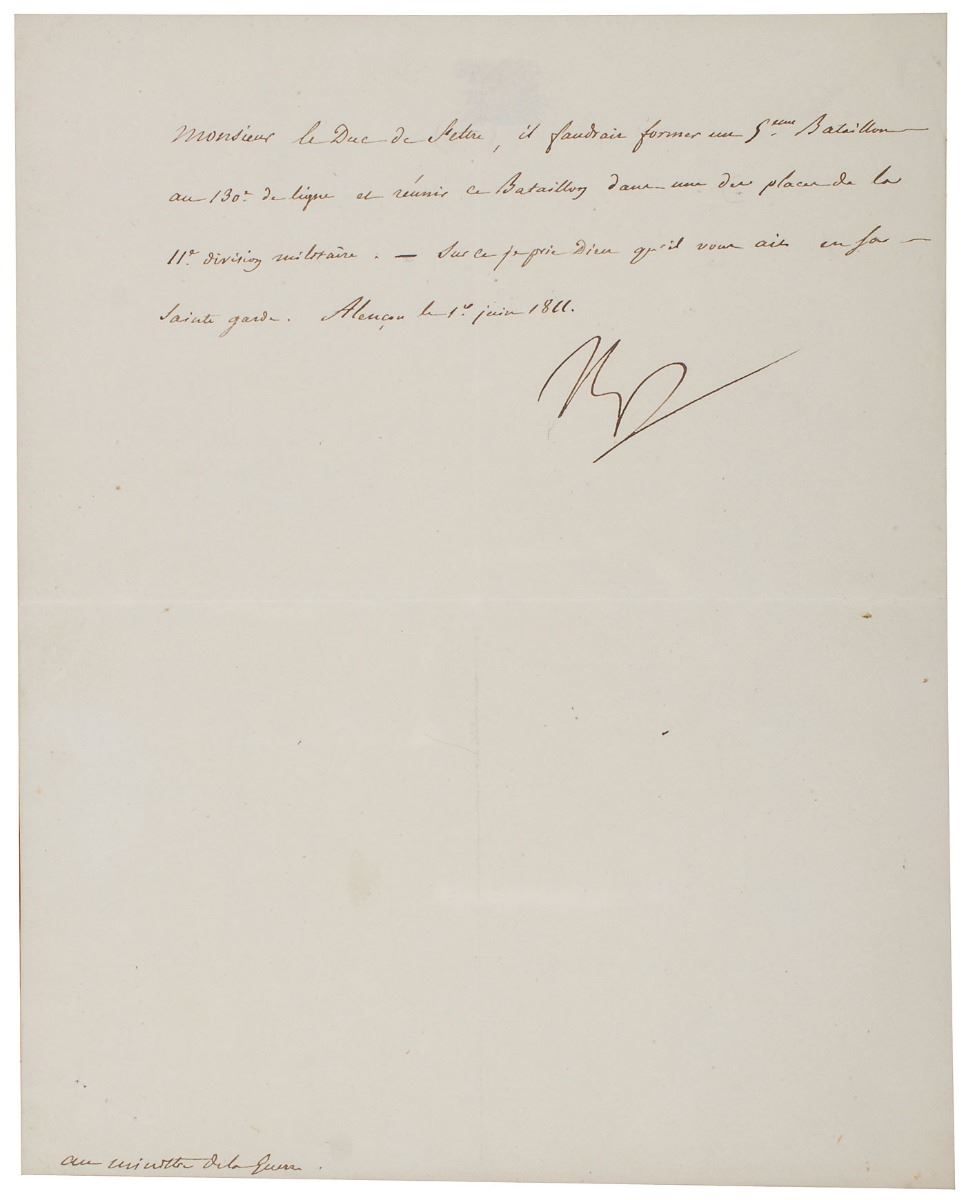 Monsieur le Duc de Feltre, il faudrait former un 5.eme Bataillon
au 130.e de ligne et réunir ce Bataillon dans une des places de la
11.e division militaire. — Sur ce je prie Dieu qu'il vous ait en sa —
Sainte garde. Alençon le 1.er juin 1811.
Np
au ministre de la Guerre.